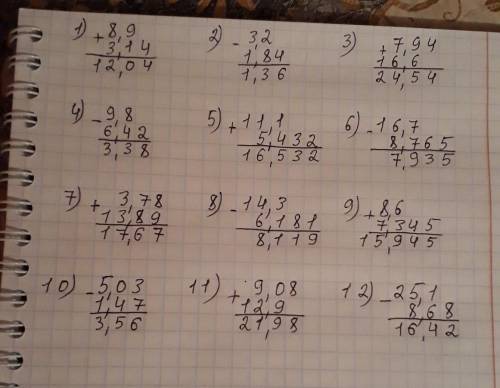 1) + 8,9
3,14
12,04
2) - 3,2
1,84
1,36
3) + 7,94
16,6
24,54
4) - 9,8
6,42
3,38
5) + 11,1
5,432
16,532
6) - 16,7
8,765
7,935
7) + 3,78
13,89
17,67
8) - 14,3
6,181
8,119
9) + 8,6
7,345
15,945
10) - 5,03
1,47
3,56
11) + 9,08
12,9
21,98
12) - 25,1
8,68
16,42